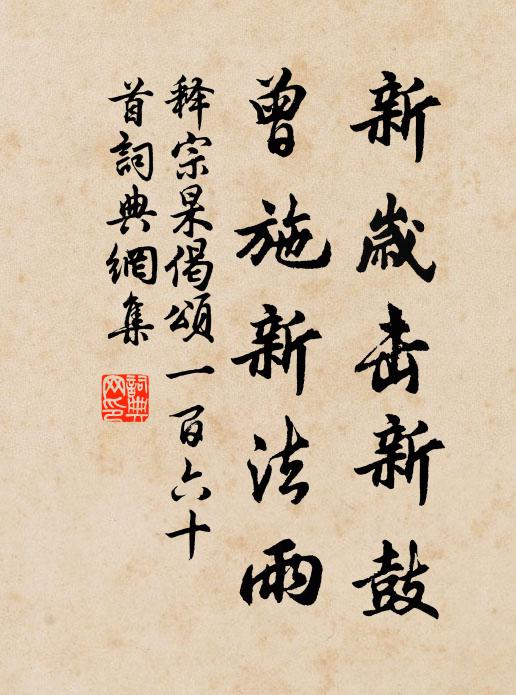 新歲击新鼓
曾施新法雨
释宗杲偈頌一百六十
首詞典網集
詞典网印